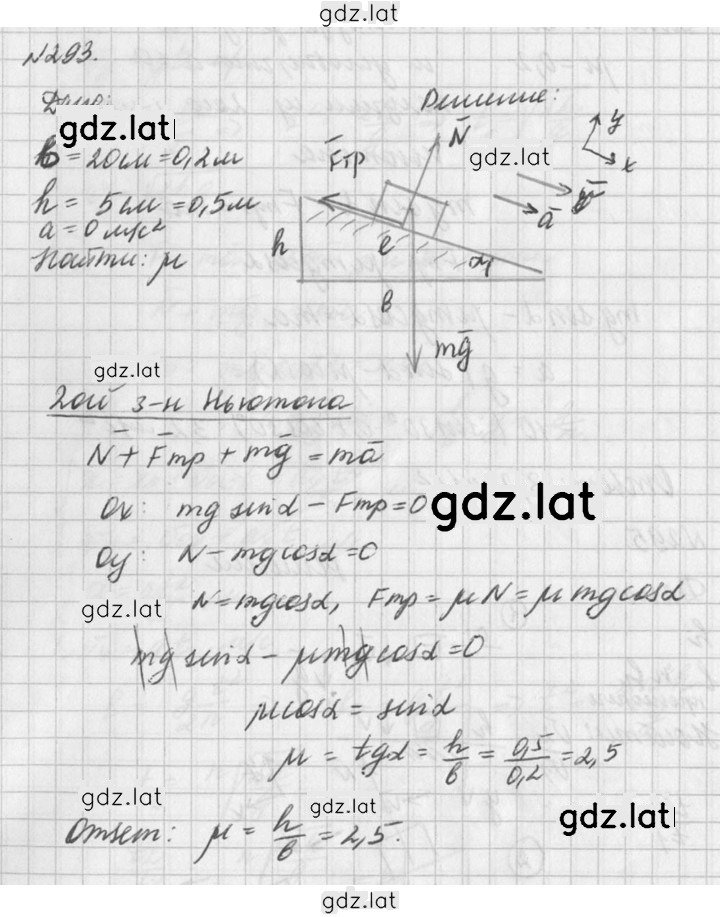 gdz.lat
№293.
Дано:
Решение:
gdz.lat
b = 20см = 0,2м
h = 5см = 0,5м
a = 0 м/с²
Найти: μ
N̄
F̄тр
gdz.lat
y
x
ā
h
e
α
в
mḡ
gdz.lat
2ой з-н Ньютона
N̄ + F̄тр + mḡ = mā
Ox: mg sinα - Fтр = 0
gdz.lat
Oy: N - mg cosα = 0
gdz.lat
N = mg cosα, Fтр = μN = μmg cosα
mg sinα - μmg cosα = 0
μ cosα = sinα
μ = tgα = h/в = 0,5/0,2 = 2,5
gdz.lat
gdz.lat
gdz.lat
Ответ: μ = h/в = 2,5.
gdz.lat